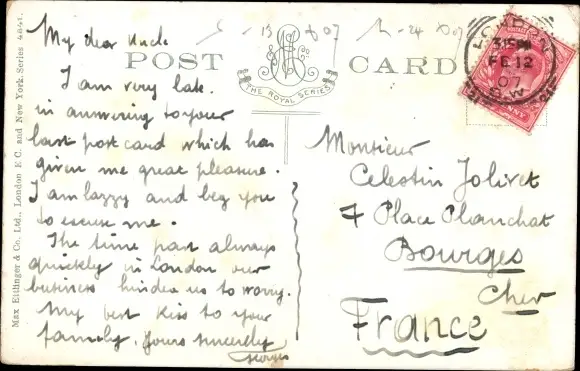 My dear Uncle
I am very late.
in answering to your
last post card which has
given me great pleasure.
I am lazzy and beg you
to excuse me.
The time past always
quickly in London our
business hinden us to worry.
My best Kiss to your
family. Yours sincerely
Georges
POST CARD
THE ROYAL SERIES
LONDON
3.15 PM
FE 12
07
S.W
Monsieur
Celestin Jolivet
7 Place Planchat
Bourges
Cher
France
Max Ettlinger & Co. Ltd., London E C. and New York. Series 4841.